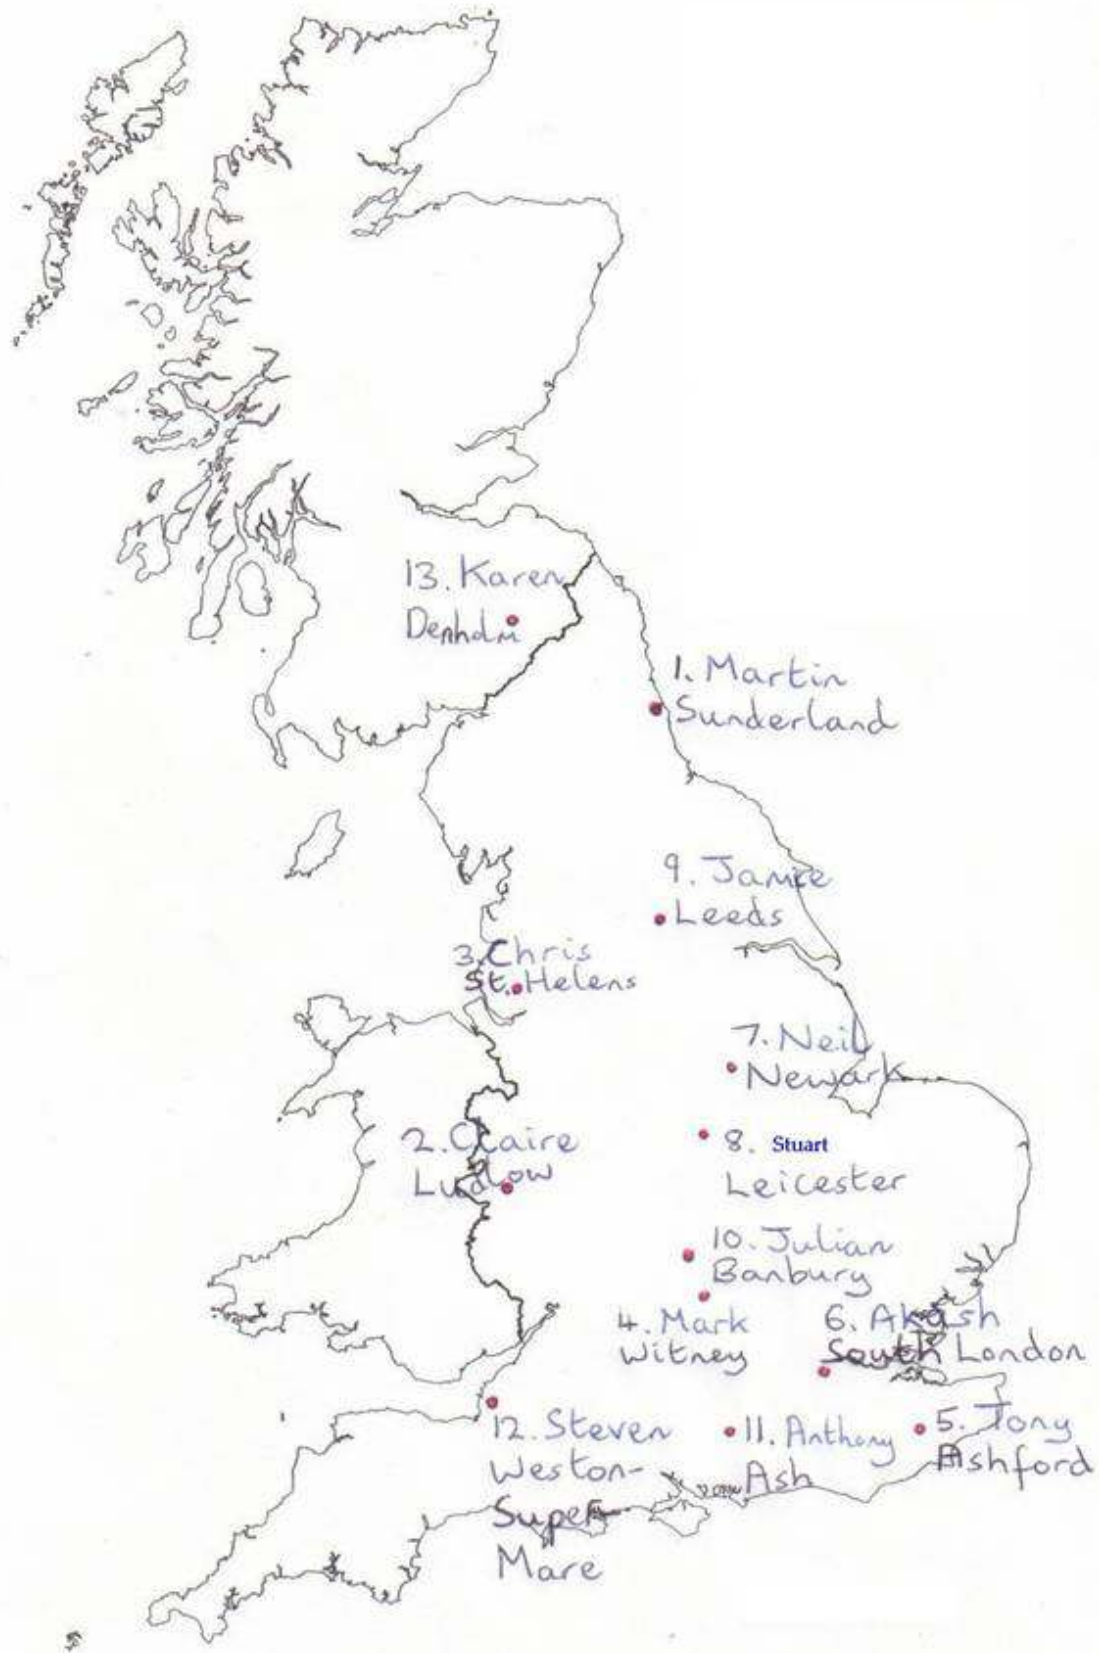 13. Karen
Denholm
1. Martin
Sunderland
9. Jamie
Leeds
3. Chris
St. Helens
7. Neil
Newark
2. Claire
Ludlow
8. Stuart
Leicester
10. Julian
Banbury
4. Mark
Witney
6. Akash
South London
12. Steven
Weston-
Super-
Mare
11. Anthony
Ash
5. Tony
Ashford